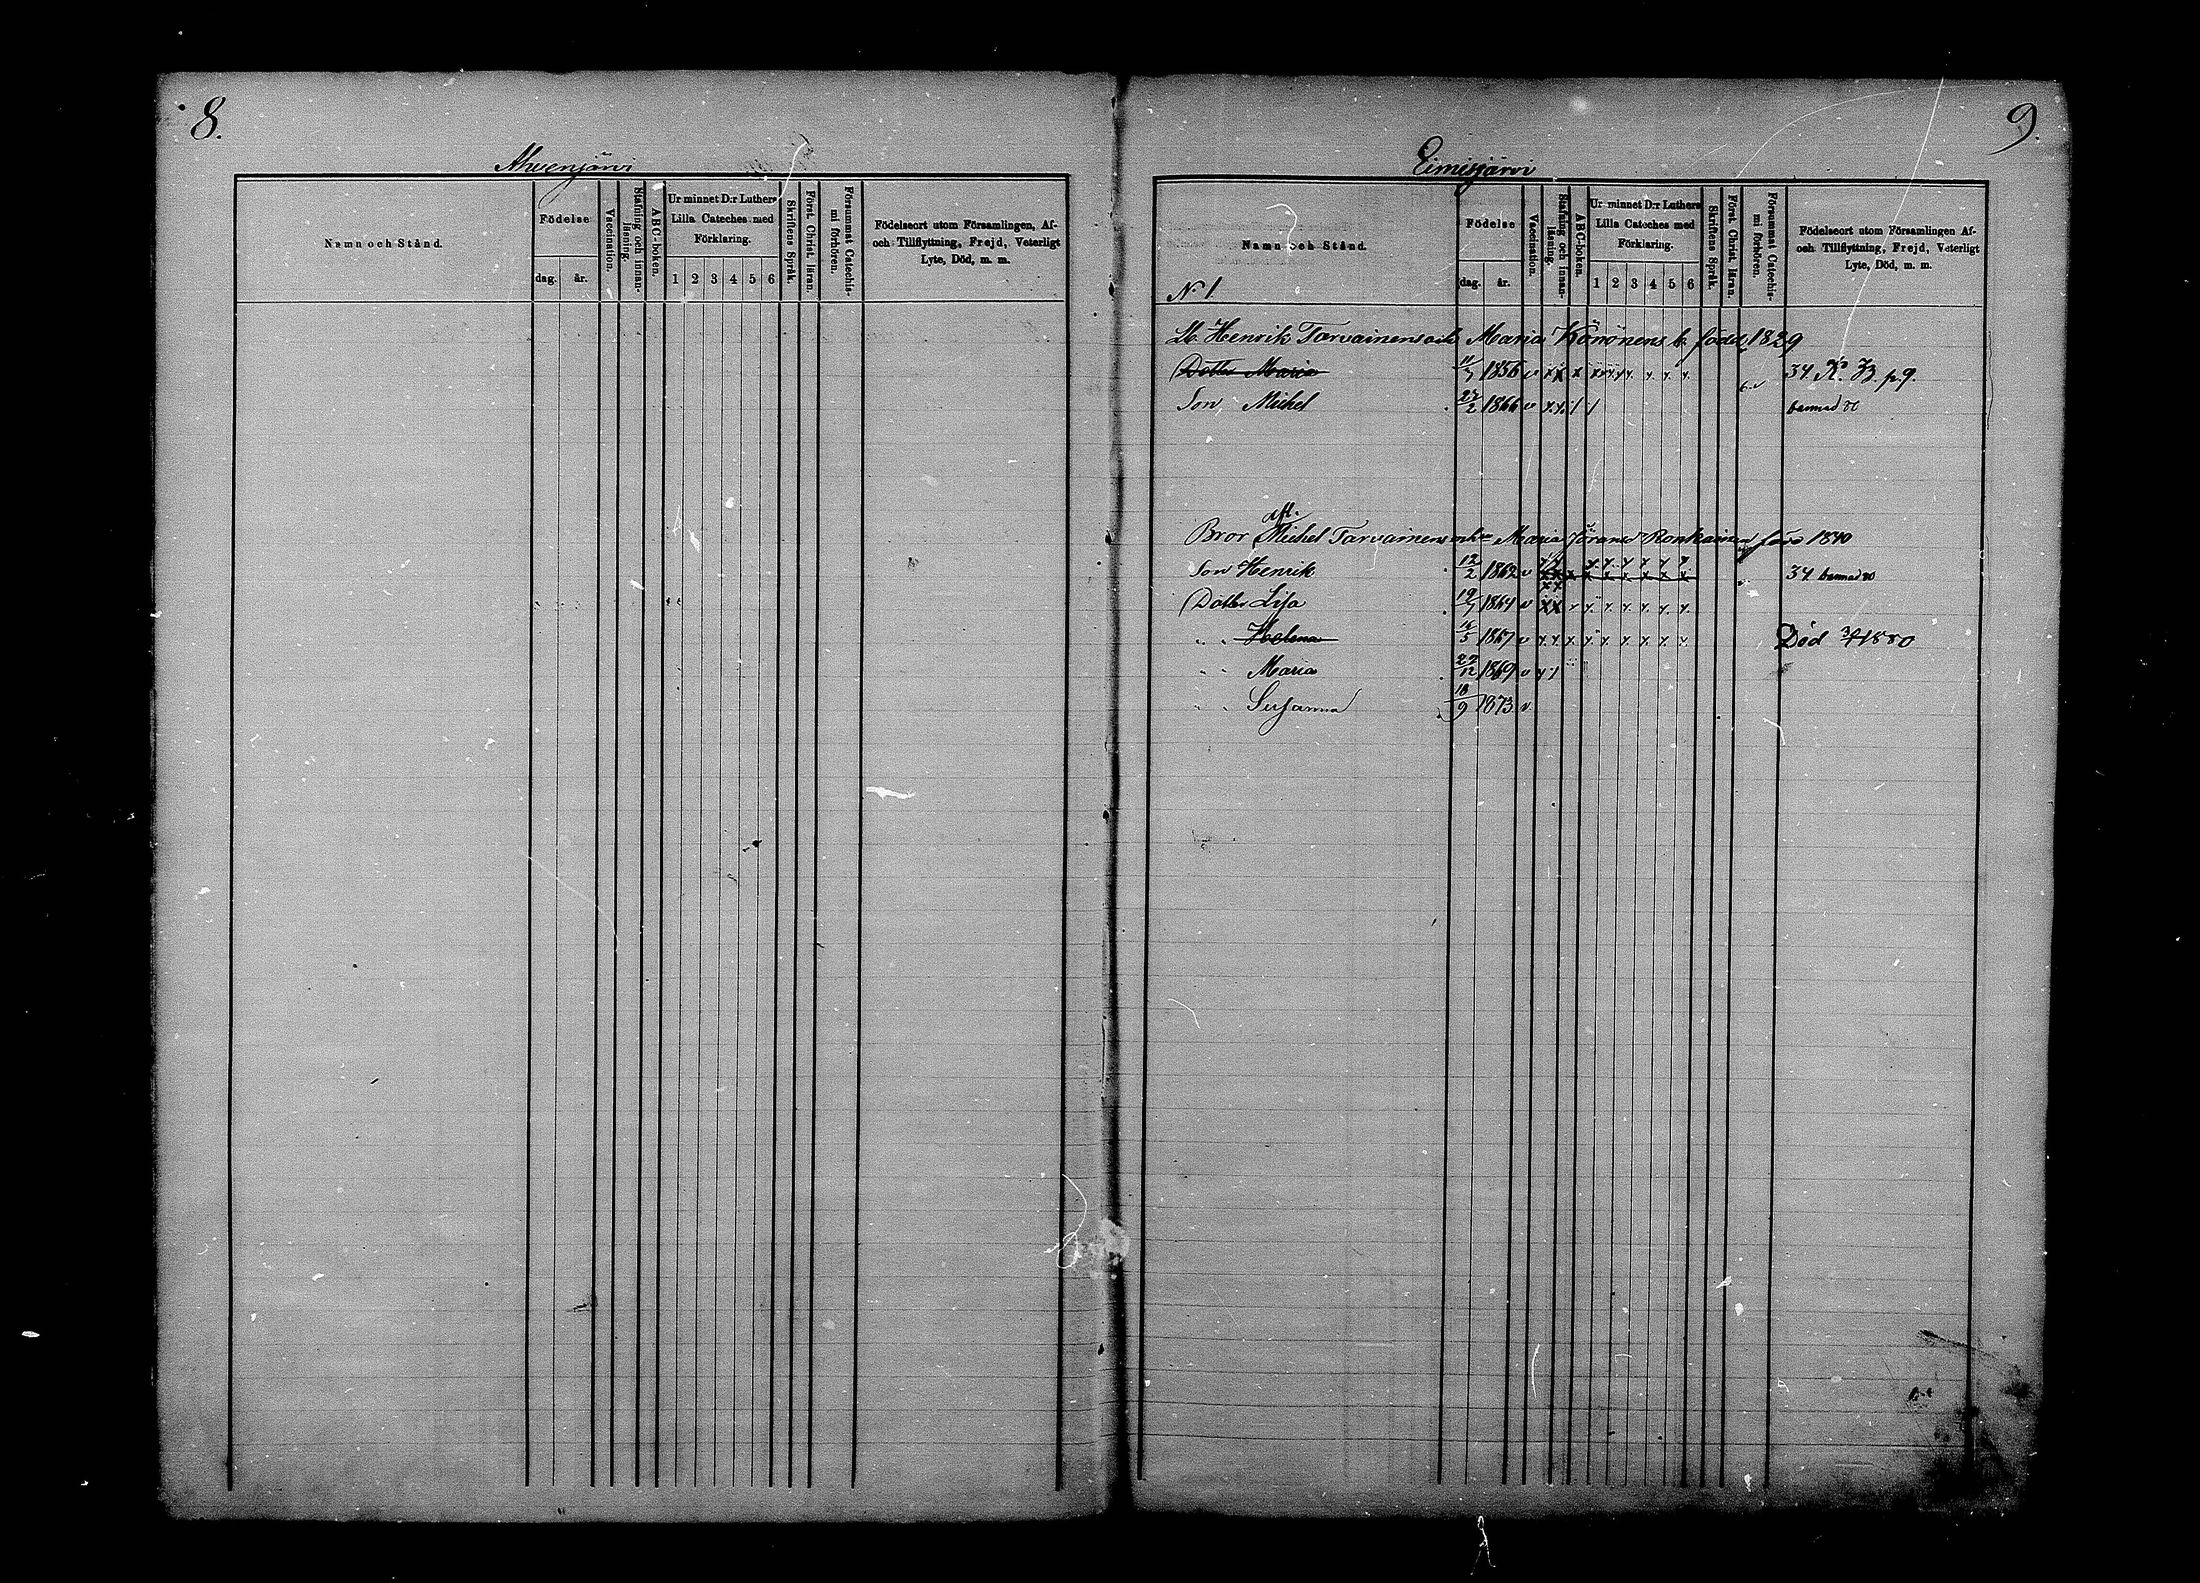 8.
Ahvenjärvi
Namn och Stånd.
Födelse
dag. år.
Vaccination.
Stafning och innanläsning.
ABC-boken.
Ur minnet D:r Luthers
Lilla Cateches med
Förklaring.
1 2 3 4 5 6
Skriftens Språk.
Först. Christ. läran.
Försummat Catechismi förhören.
Födelseort utom Församlingen, Af-
och Tillflyttning, Frejd, Veterligt
Lyte, Död, m. m.
9.
Eimisjärvi
Namn och Stånd.
Födelse
dag. år.
Vaccination.
Stafning och innanläsning.
ABC-boken.
Ur minnet D:r Luthers
Lilla Cateches med
Förklaring.
1 2 3 4 5 6
Skriftens Språk.
Först. Christ. läran.
Försummat Catechismi förhören.
Födelseort utom Församlingen Af-
och Tillflyttning, Frejd, Veterligt
Lyte, Död, m. m.
N:o 1.
Henrik Tarvainens och Maria Könönens b. född 1829
Dotter Maria 11/7 1856 v x x x x x x x x x 34 K. B. p. 9.
Son Michel 27/2 1866 v x x / /
Bror afl. Michel Tarvainens enka Maria Jörans Ronkainen född 1840
Son Henrik 12/2 1862 v x x x x x x x x x 34
Dotter Lisa 19/7 1864 v x x x x x x x x x
" " Helena 16/5 1867 v x x x x x x x x x Död 3/4 1880
" " Maria 27/12 1869 v x /
" " Susanna 18/9 1873 v